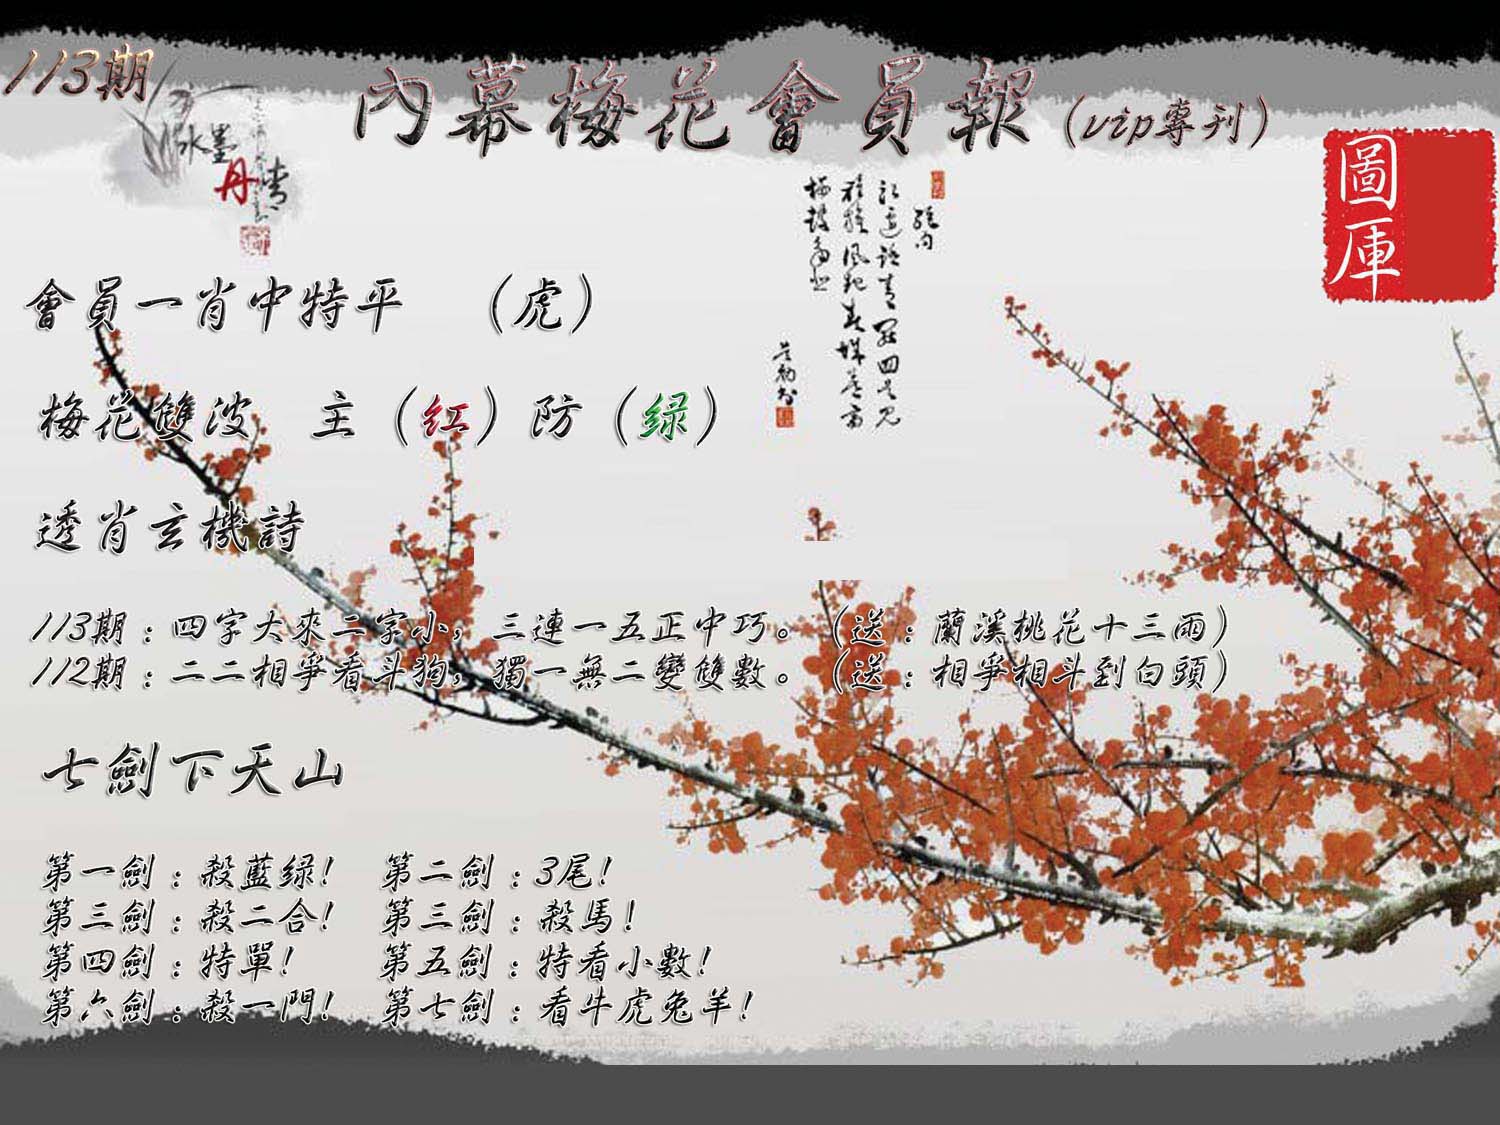 113期
內幕梅花會員報(vip專刊)
水墨
丹情
圖庫
會員一肖中特平 (虎)
梅花雙波 主(红)防(绿)
透肖玄機詩
113期:四字大來二字小,三連一五正中巧。(送:蘭溪桃花十三雨)
112期:二二相爭看斗狗,獨一無二變雙數。(送:相爭相斗到白頭)
七劍下天山
第一劍:殺藍绿! 第二劍:3尾!
第三劍:殺二合! 第三劍:殺馬!
第四劍:特單! 第五劍:特看小數!
第六劍:殺一門! 第七劍:看牛虎兔羊!